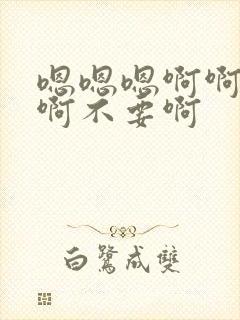 嗯嗯嗯啊啊
啊不要啊
白鹭成双